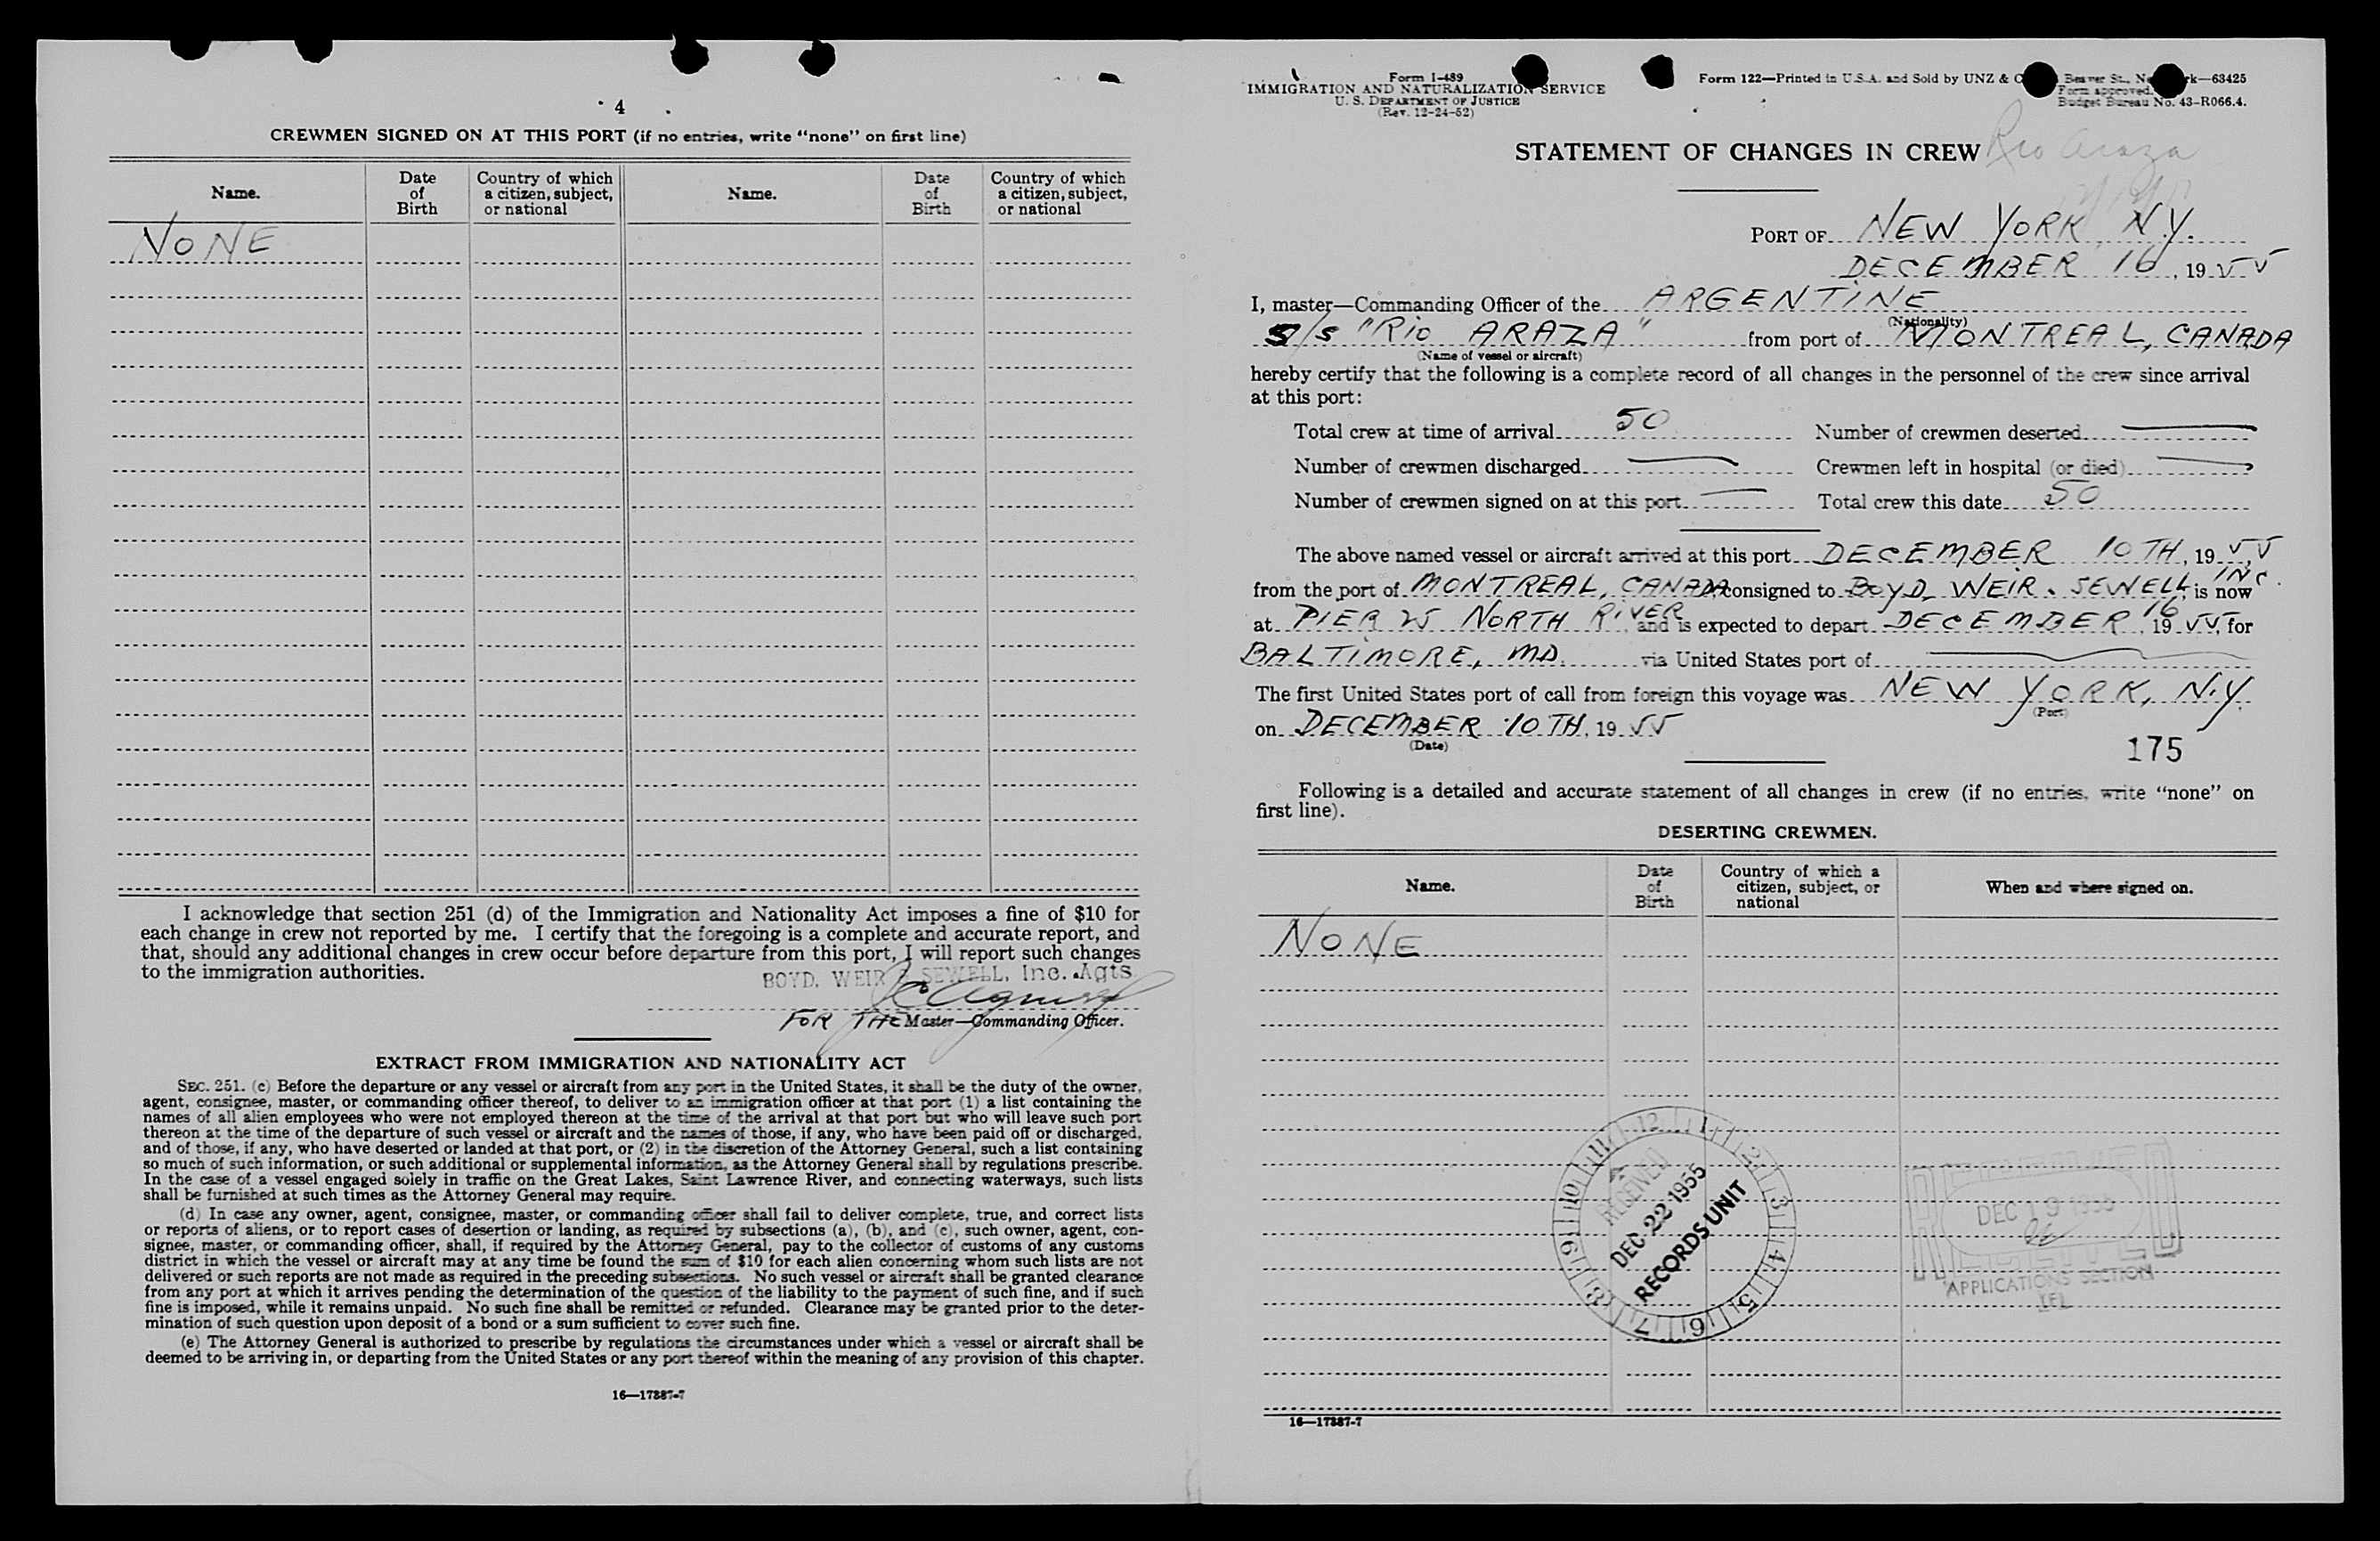 4
CREWMEN SIGNED ON AT THIS PORT (if no entries, write "none" on first line)
Name. Date of Birth Country of which a citizen, subject, or national Name. Date of Birth Country of which a citizen, subject, or national
NONE
I acknowledge that section 251 (d) of the Immigration and Nationality Act imposes a fine of $10 for
each change in crew not reported by me. I certify that the foregoing is a complete and accurate report, and
that, should any additional changes in crew occur before departure from this port, I will report such changes
to the immigration authorities.
BOYD, WEIR & SEWELL, Inc. Agts
FOR THE Master—Commanding Officer.
EXTRACT FROM IMMIGRATION AND NATIONALITY ACT
SEC. 251. (c) Before the departure or any vessel or aircraft from any port in the United States, it shall be the duty of the owner,
agent, consignee, master, or commanding officer thereof, to deliver to an immigration officer at that port (1) a list containing the
names of all alien employees who were not employed thereon at the time of the arrival at that port but who will leave such port
thereon at the time of the departure of such vessel or aircraft and the names of those, if any, who have been paid off or discharged,
and of those, if any, who have deserted or landed at that port, or (2) in the discretion of the Attorney General, such a list containing
so much of such information, or such additional or supplemental information, as the Attorney General shall by regulations prescribe.
In the case of a vessel engaged solely in traffic on the Great Lakes, Saint Lawrence River, and connecting waterways, such lists
shall be furnished at such times as the Attorney General may require.
(d) In case any owner, agent, consignee, master, or commanding officer shall fail to deliver complete, true, and correct lists
or reports of aliens, or to report cases of desertion or landing, as required by subsections (a), (b), and (c), such owner, agent, con-
signee, master, or commanding officer, shall, if required by the Attorney General, pay to the collector of customs of any customs
district in which the vessel or aircraft may at any time be found the sum of $10 for each alien concerning whom such lists are not
delivered or such reports are not made as required in the preceding subsections. No such vessel or aircraft shall be granted clearance
from any port at which it arrives pending the determination of the question of the liability to the payment of such fine, and if such
fine is imposed, while it remains unpaid. No such fine shall be remitted or refunded. Clearance may be granted prior to the deter-
mination of such question upon deposit of a bond or a sum sufficient to cover such fine.
(e) The Attorney General is authorized to prescribe by regulations the circumstances under which a vessel or aircraft shall be
deemed to be arriving in, or departing from the United States or any port thereof within the meaning of any provision of this chapter.
16—17887-7
Form I-489
IMMIGRATION AND NATURALIZATION SERVICE
U. S. DEPARTMENT OF JUSTICE
(Rev. 12-24-52)
Form 122—Printed in U.S.A. and Sold by UNZ & Beaver St., 63425
Form approved.
Budget Bureau No. 43-R066.4.
STATEMENT OF CHANGES IN CREW Rio Araza
PORT OF NEW YORK, N.Y.
DECEMBER 16, 1955
I, master—Commanding Officer of the ARGENTINE
(Nationality)
S/S "RIO ARAZA" from port of MONTREAL, CANADA
(Name of vessel or aircraft)
hereby certify that the following is a complete record of all changes in the personnel of the crew since arrival
at this port:
Total crew at time of arrival 50 Number of crewmen deserted
Number of crewmen discharged Crewmen left in hospital (or died)
Number of crewmen signed on at this port Total crew this date 50
The above named vessel or aircraft arrived at this port DECEMBER 10TH, 1955
from the port of MONTREAL, CANADA consigned to BOYD, WEIR & SEWELL, INC. is now
at PIER 25 NORTH RIVER and is expected to depart DECEMBER 16, 1955, for
BALTIMORE, MD. via United States port of
The first United States port of call from foreign this voyage was NEW YORK, N.Y.
(Port)
on DECEMBER 10TH, 1955
(Date)
175
Following is a detailed and accurate statement of all changes in crew (if no entries, write "none" on
first line).
DESERTING CREWMEN.
Name. Date of Birth Country of which a citizen, subject, or national When and where signed on.
NONE
12 1 2 3 4 5 6 7 8 9 10 11
RECEIVED
DEC 22 1955
RECORDS UNIT
RECEIVED
DEC 19 1955
APPLICATIONS SECTION
16—17887-7